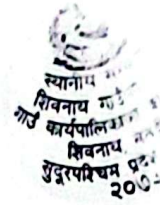 स्थानीय
शिवनाथ गाउँ
गाउँ कार्यपालिका
शिवनाथ,
सुदूरपश्चिम प्रदेश
२०७